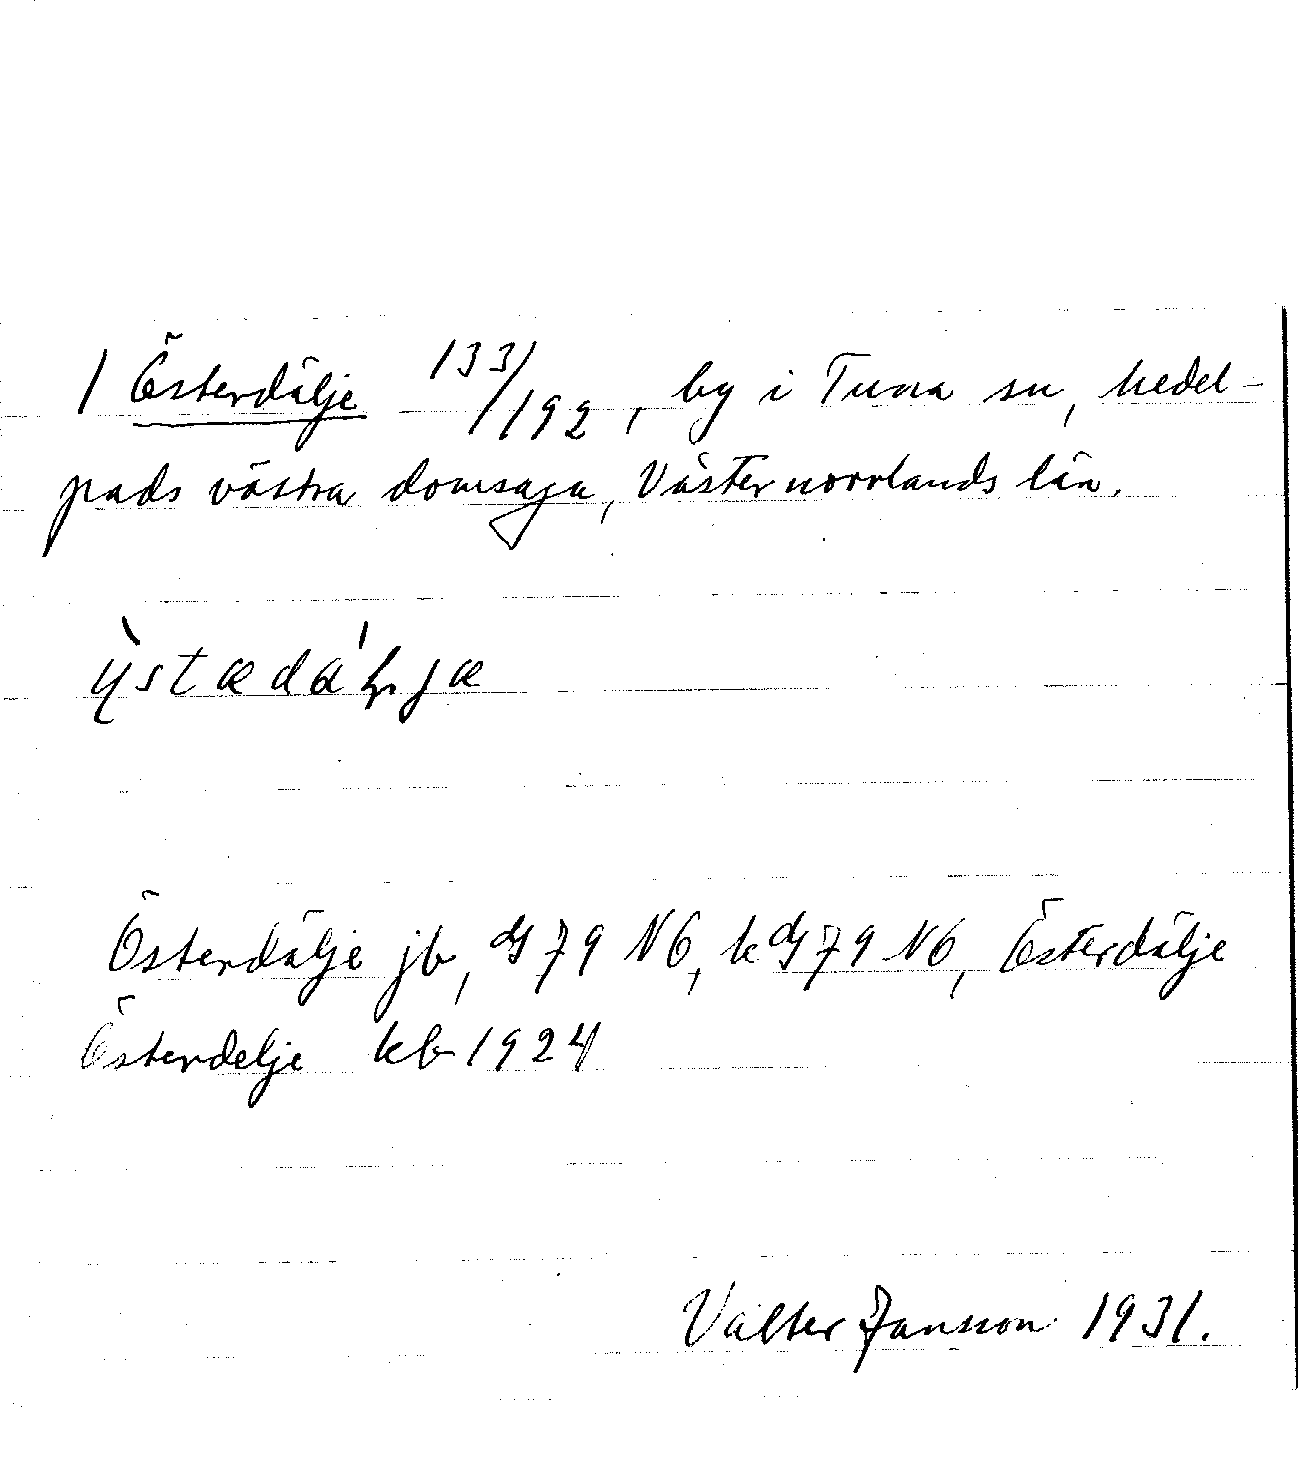 / Österdälje 133/192, by i Tuna sn, Medel-
pads västra domsaga, Västernorrlands län.
Österdälje jb, G79 N6, kG79 N6, Österdälje
Österdelje kb 1924
Valter Jansson 1931.